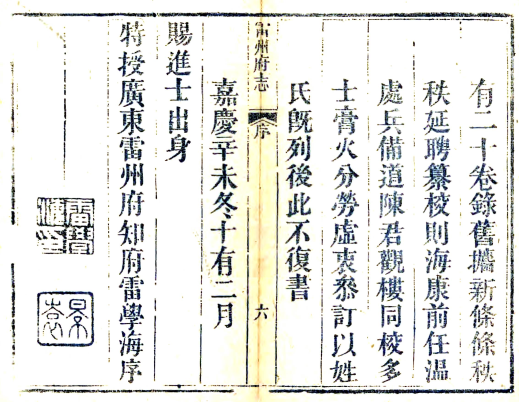 有二十卷錄舊攟新條條秩
秩延聘纂校則海康前任溫
處兵備道陳君觀樓同校多
士膏火分勞虛衷叅訂以姓
氏旣列後此不復書
雷州府志
序
六
嘉慶辛未冬十有二月
賜進士出身
特授廣東雷州府知府雷學海序
雷學海印